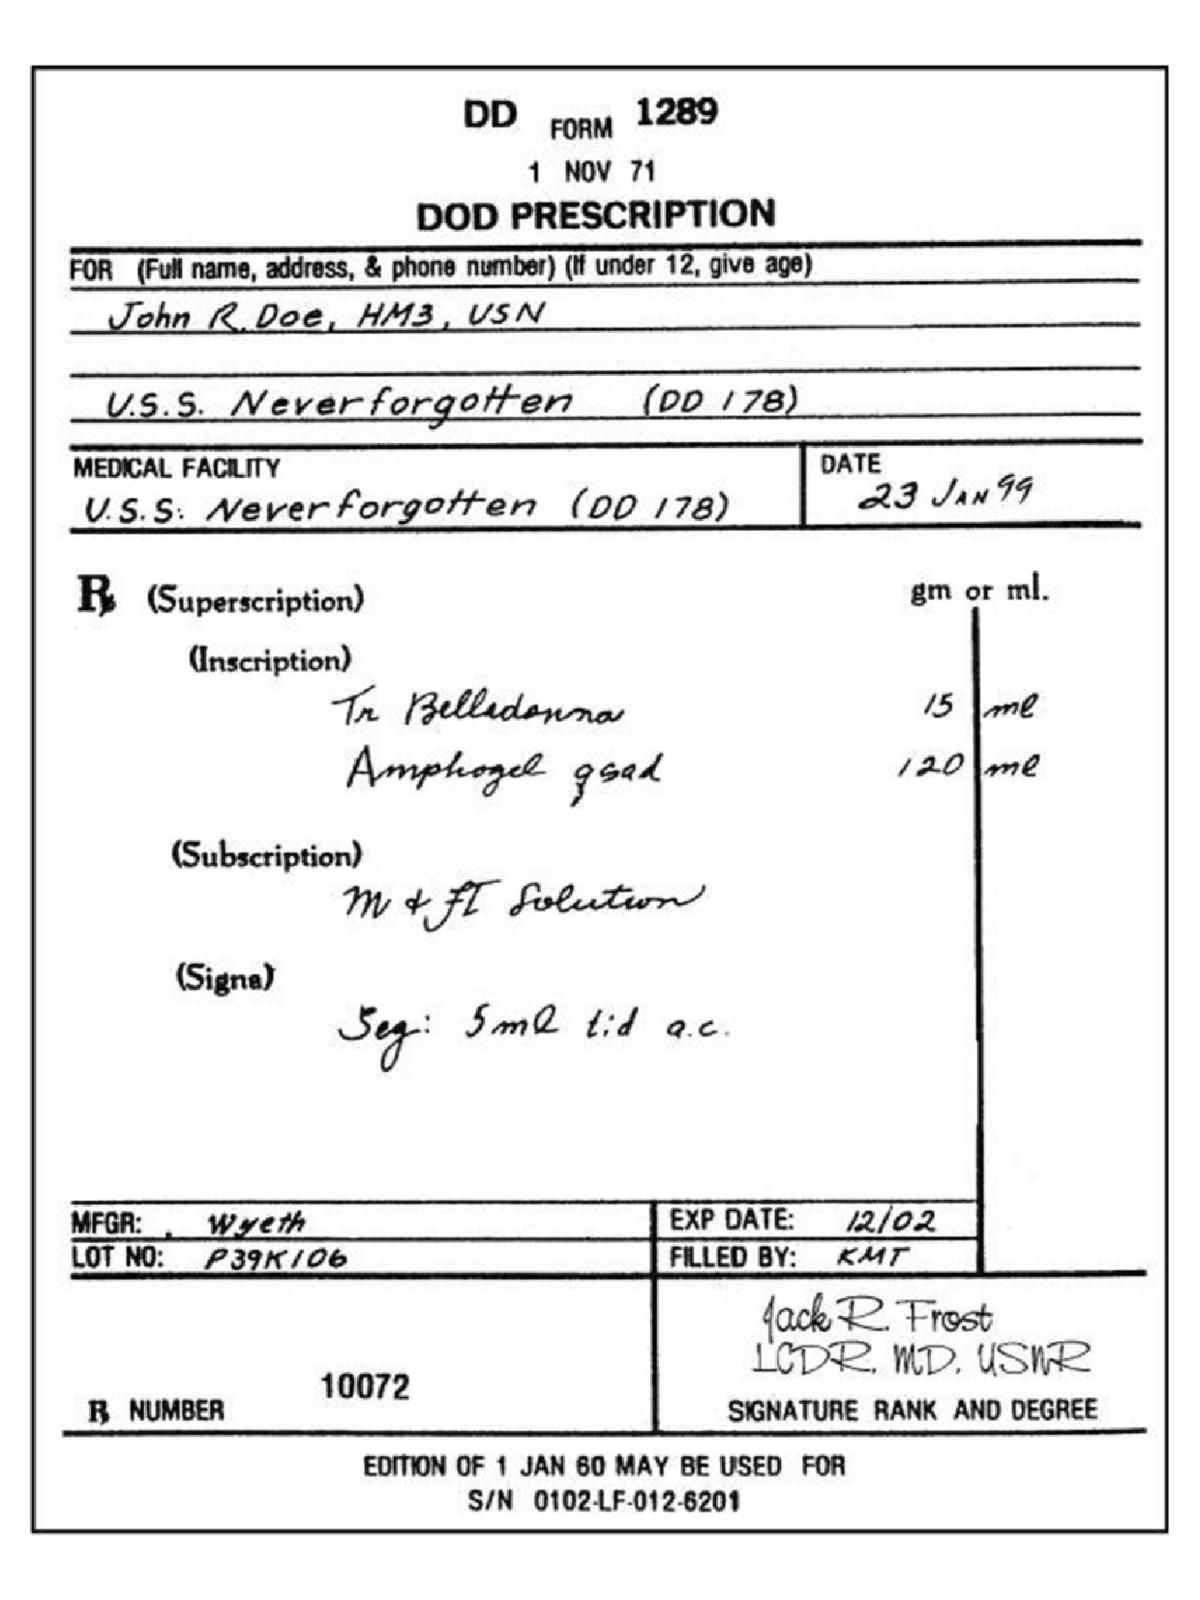 DD FORM 1289
1 NOV 71
DOD PRESCRIPTION
FOR (Full name, address, & phone number) (If under 12, give age)
John R. Doe, HM3, USN
U.S.S. Neverforgotten (DD 178)
MEDICAL FACILITY
U.S.S. Neverforgotten (DD 178)
DATE
23 JAN 99
℞ (Superscription)
gm or ml.
(Inscription)
Tr Belladonna 15 ml
Amphogel qsad 120 ml
(Subscription)
M & FT Solution
(Signa)
Sig: 5ml tid a.c.
MFGR: Wyeth
EXP DATE: 12/02
LOT NO: P39K106
FILLED BY: KMT
Jack R. Frost
LCDR. MD. USNR
10072
℞ NUMBER
SIGNATURE RANK AND DEGREE
EDITION OF 1 JAN 60 MAY BE USED FOR
S/N 0102-LF-012-6201